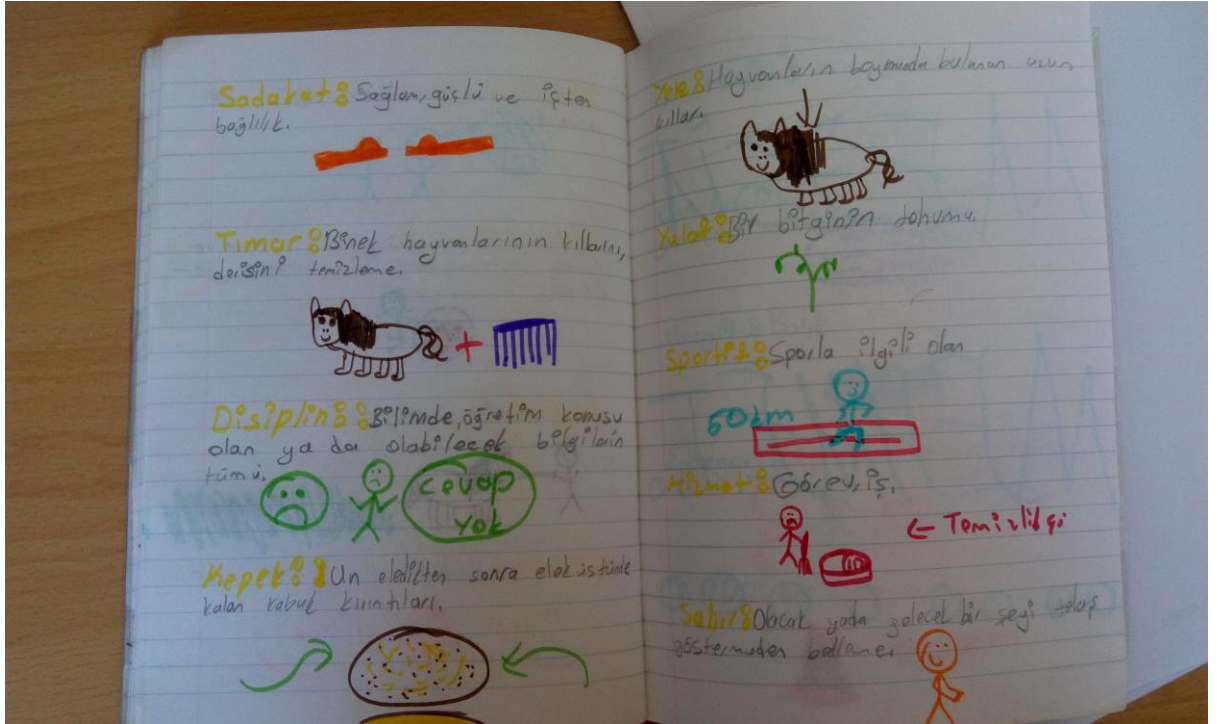 Sadakat: Sağlam, güçlü ve içten
bağlılık.
Tımar: Binek hayvanlarının kıllarını,
derisini temizleme.
Disiplin: Bilimde, öğretim konusu
olan ya da olabilecek bilgilerin
tümü.
cevap
yok
Kepek: Un eledikten sonra elek üstünde
kalan kabuk kırıntıları.
Yele: Hayvanların boynunda bulunan uzun
kıllar.
Yulaf: Bir bitginin tohumu.
Sportif: Sporla ilgili olan
60km
Hizmet: Görev, iş.
← Temizlikçi
Sabır: Olacak yada gelecek bir şeyi telaş
göstermeden bekleme.